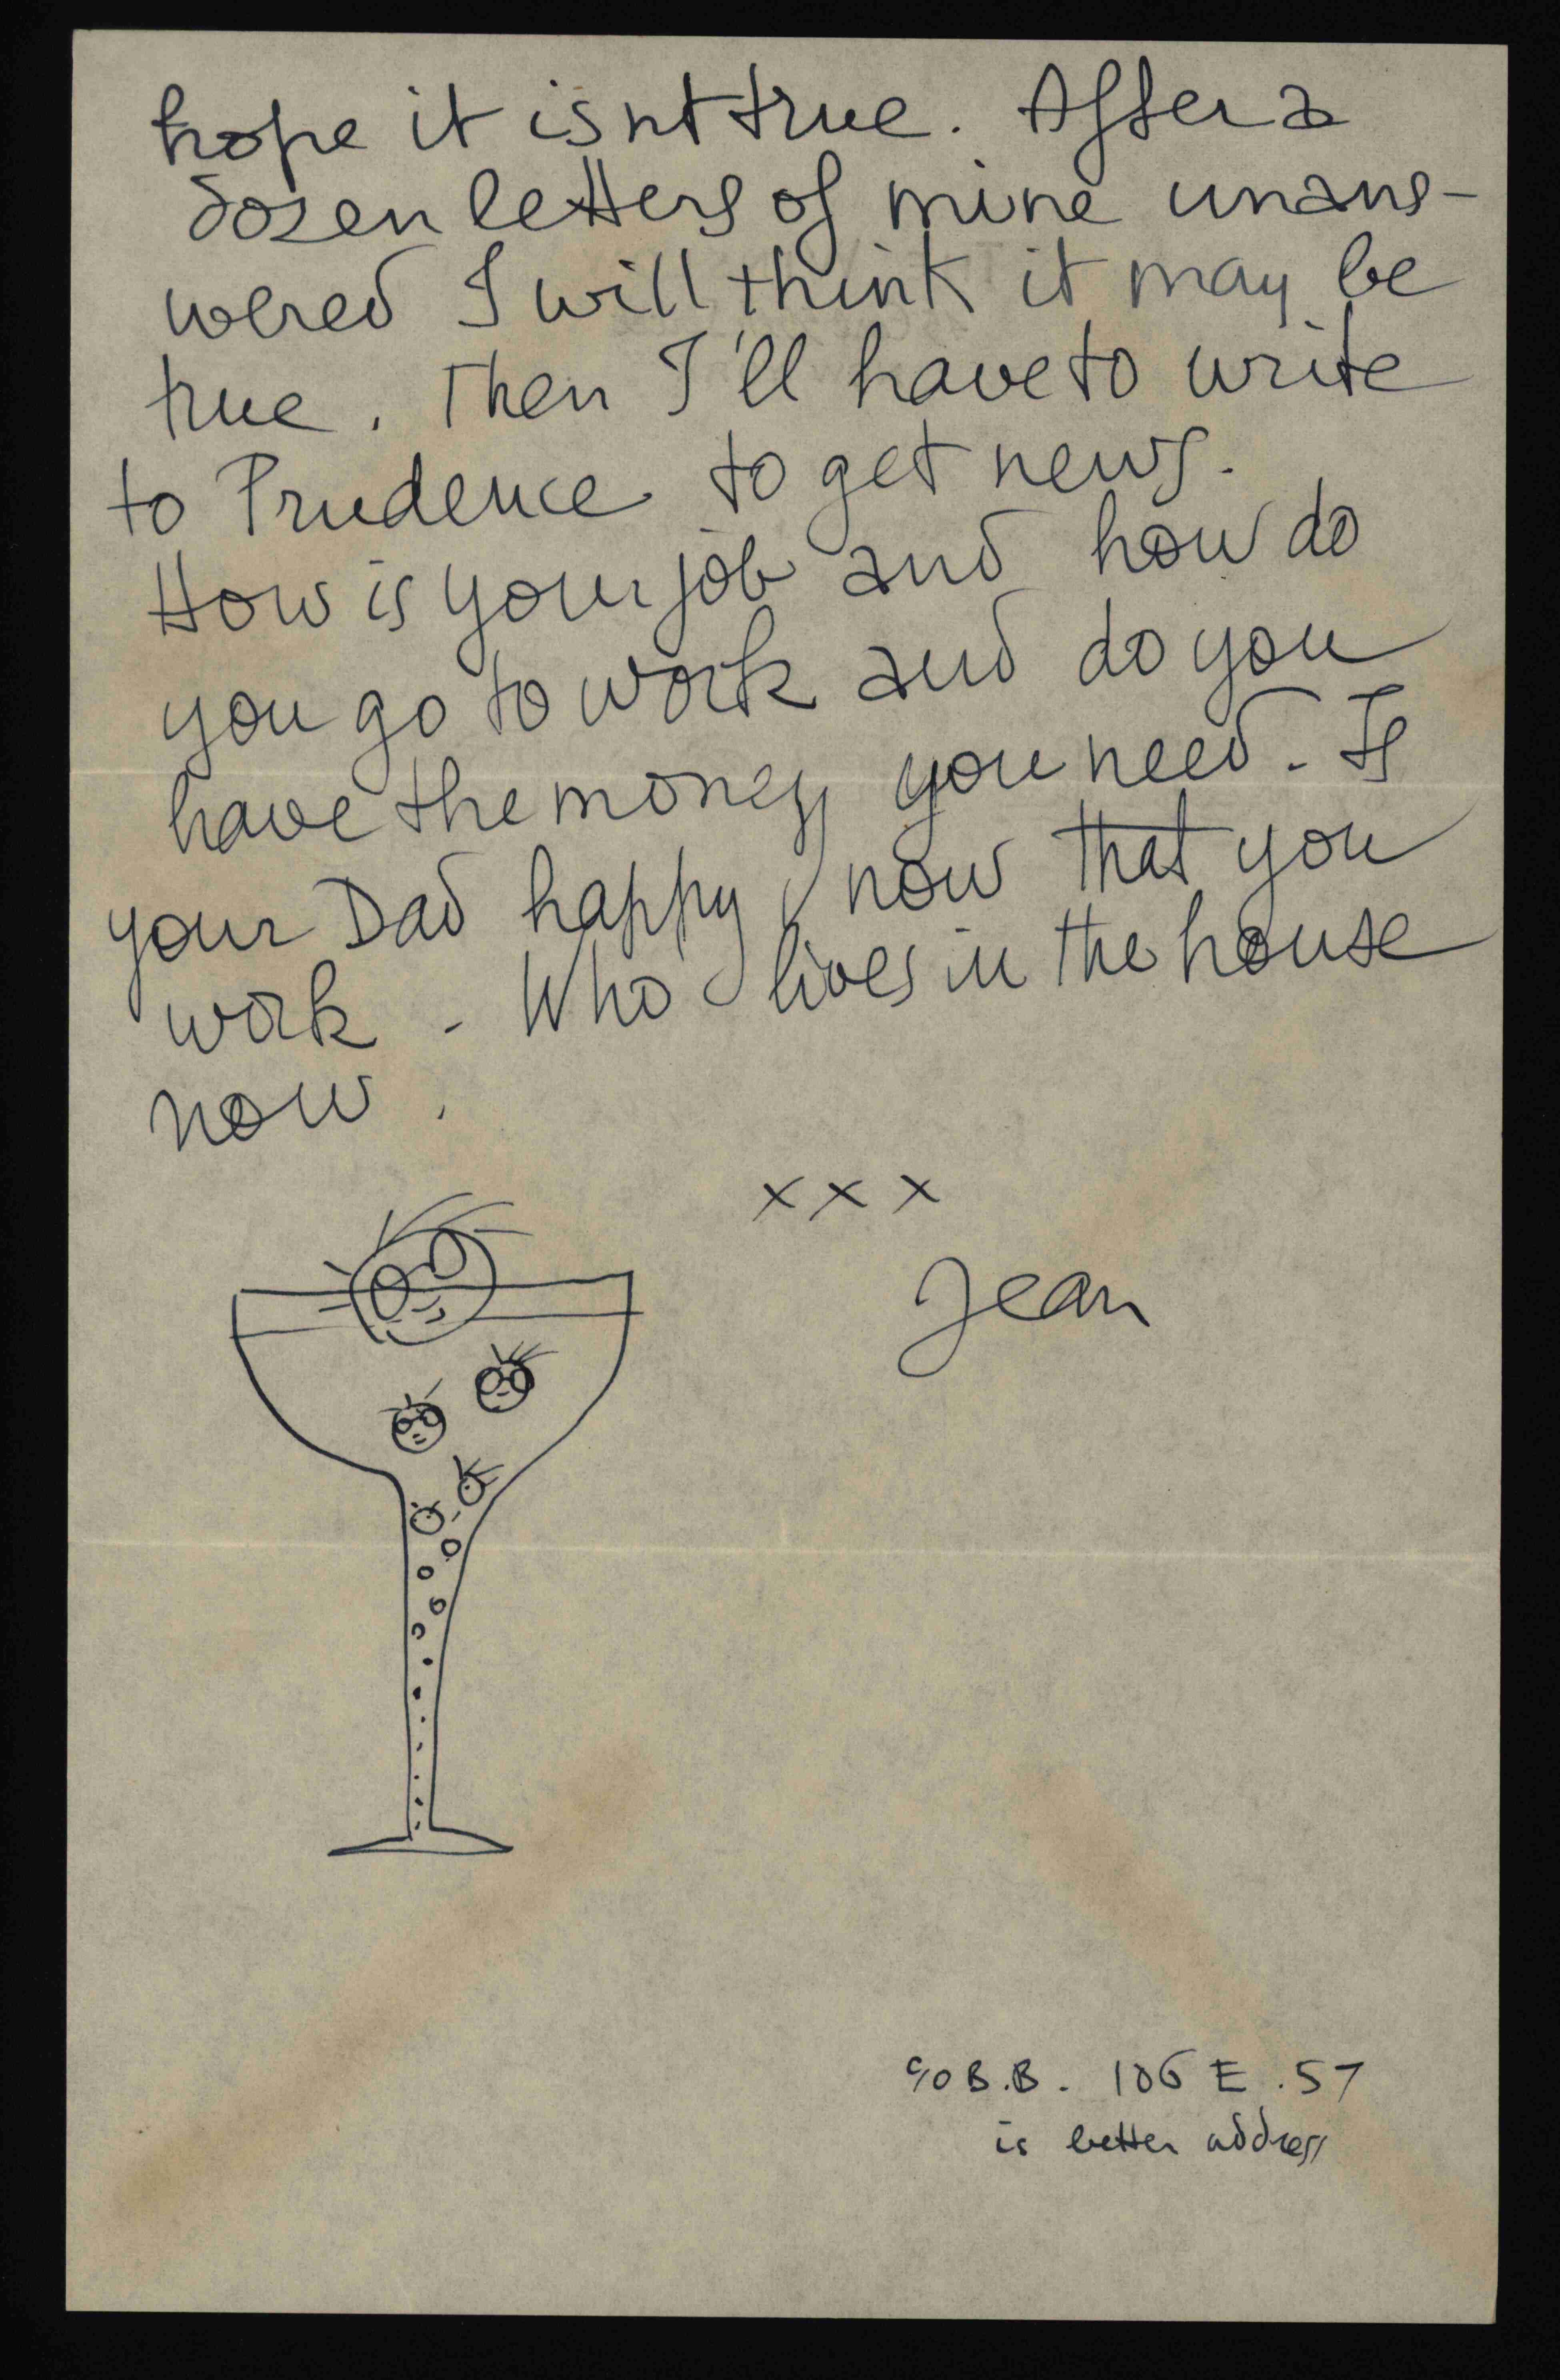 hope it isnt true. After a
dozen letters of mine unans-
wered I will think it may be
true. Then I'll have to write
to Prudence to get news.
How is your job and how do
you go to work and do you
have the money you need. Is
your Dad happy, now that you
work - Who lives in the house
now.
x x x
Jean
c/o B.B. 106 E. 57
is better address